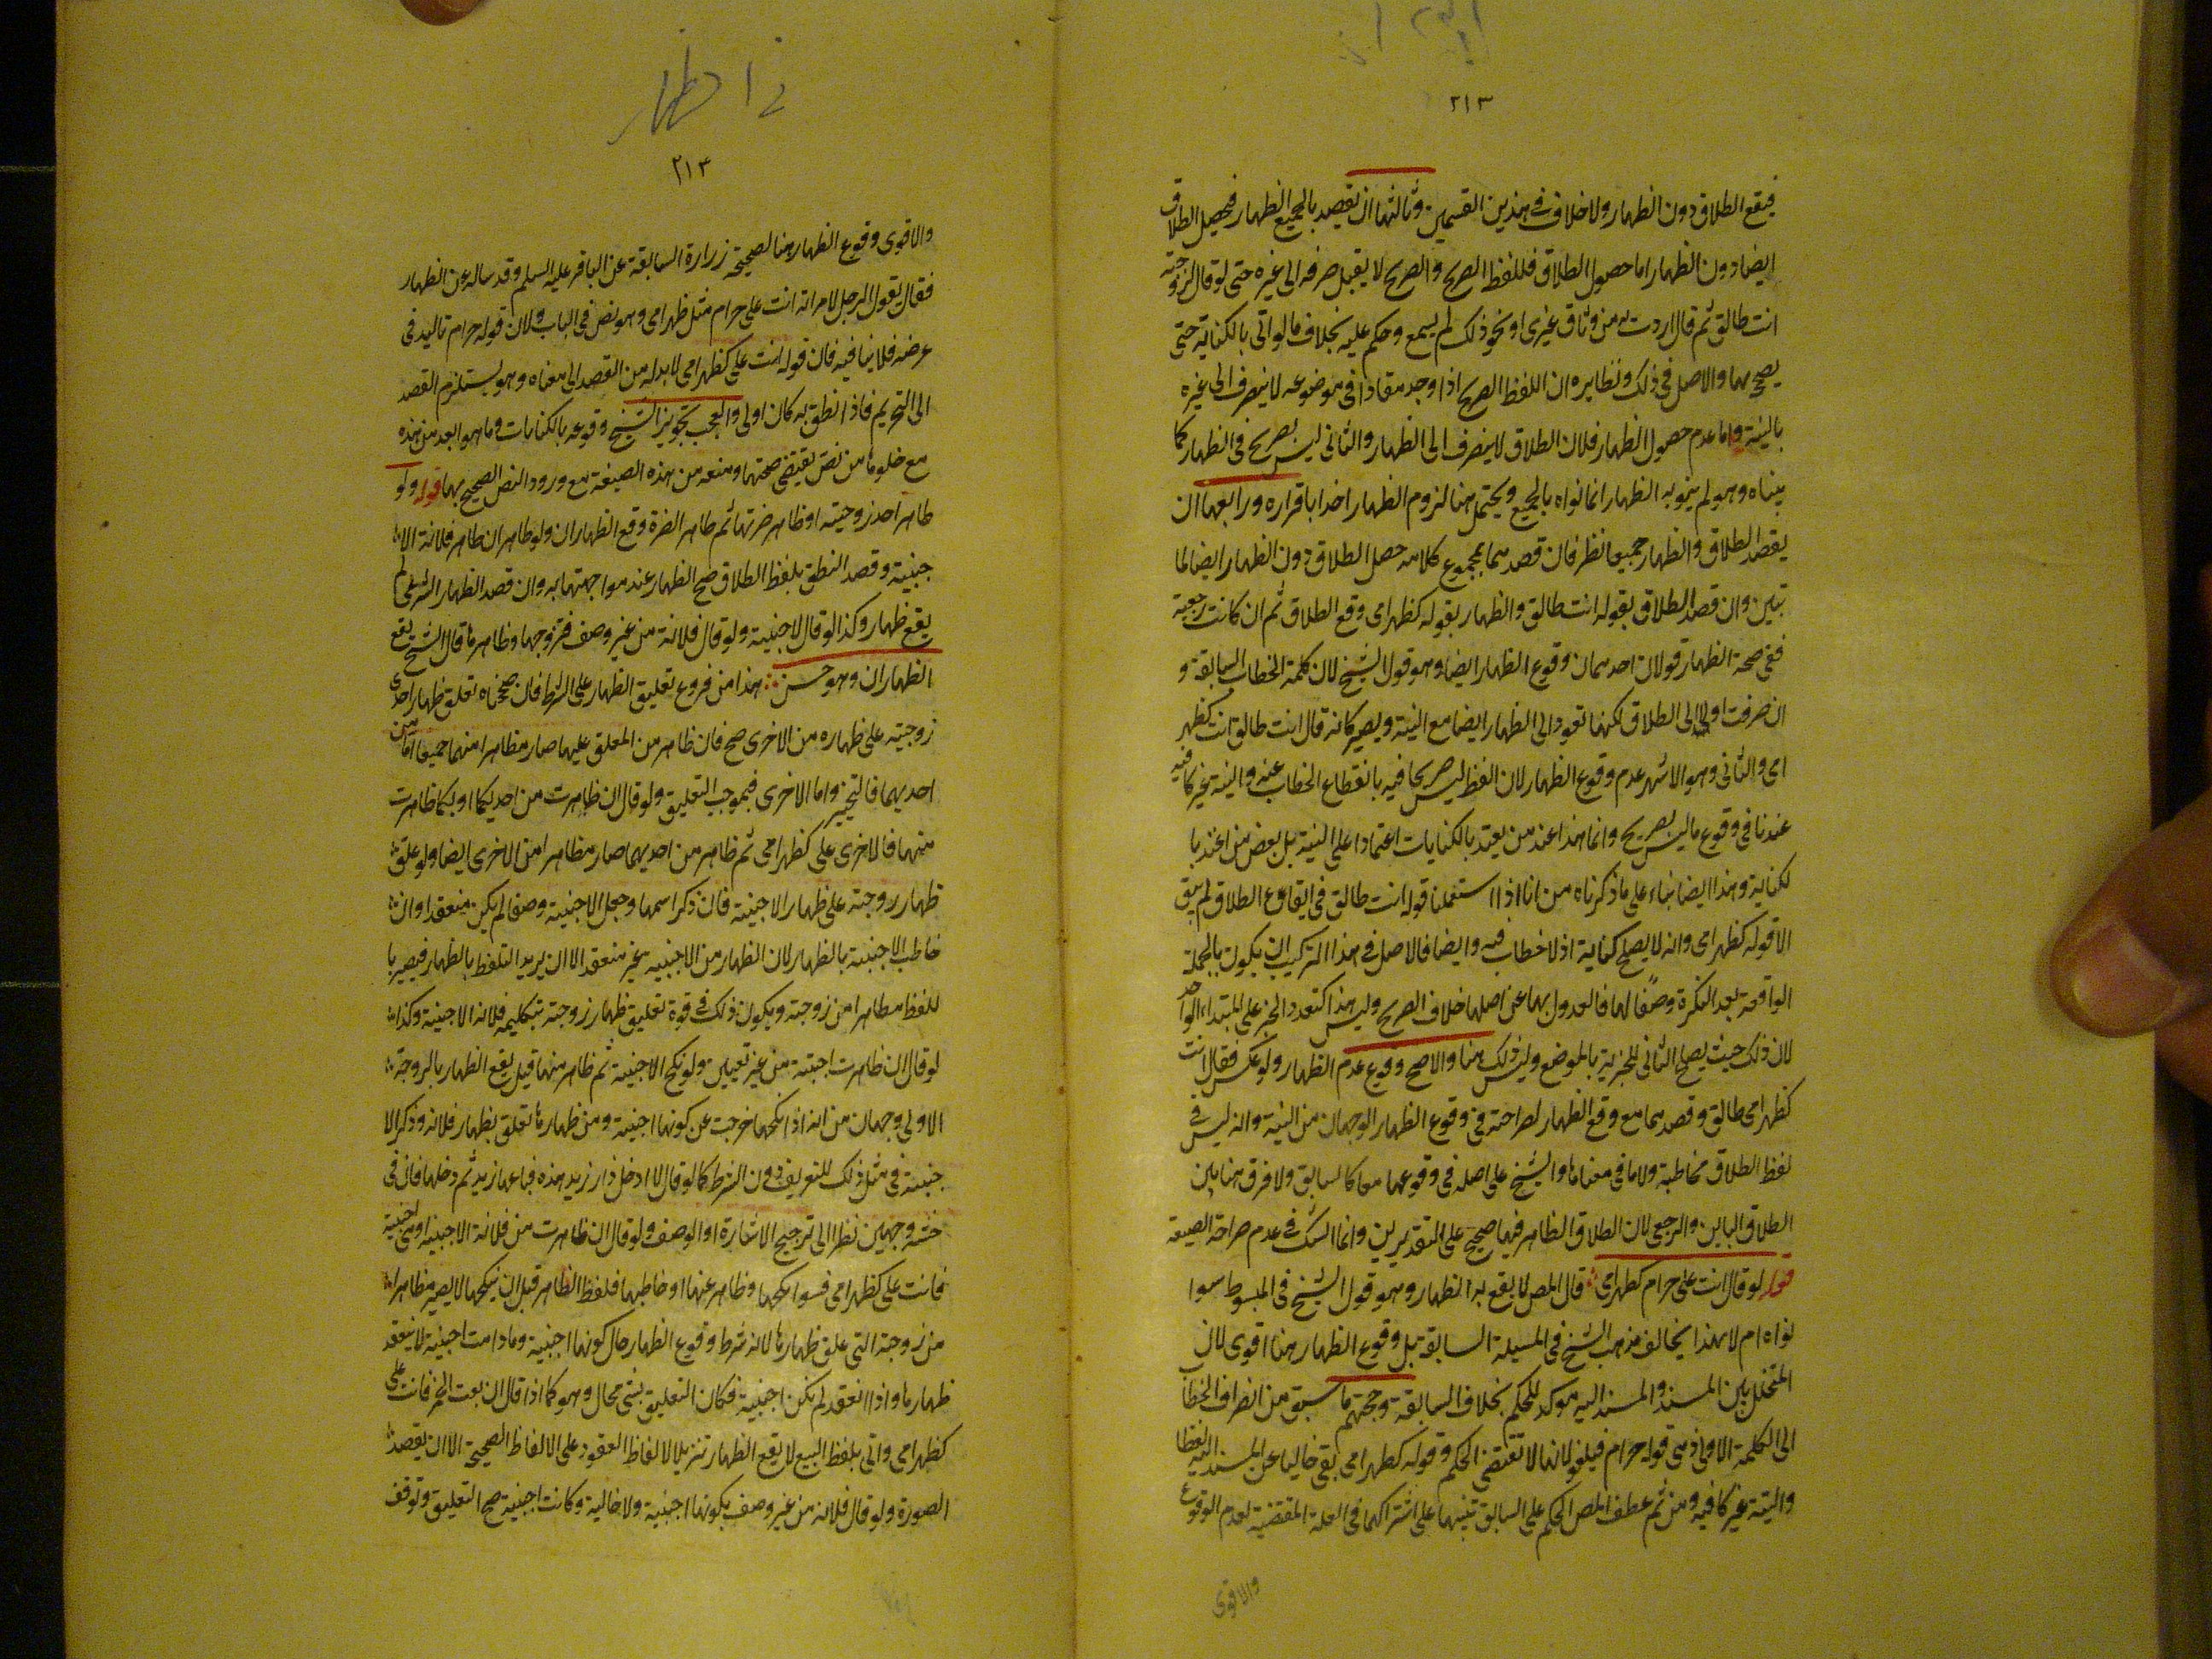 ٢١٣
فيقع الطلاق دون الظهار ولا خلاف في هذين القسمين وثالثها ان يقصد بالجميع الظهار فيحصل الطلاق
ايضا دون الظهار اما حصول الطلاق فللفظ الصريح والصريح لا يقبل صرفه الى غيره حتى لو قال لزوجته
انت طالق ثم قال اردت به من وثاق غيري او نحو ذلك لم يسمع وحكم عليه بخلاف ما لو اتى بالكناية حتى
يصح بها والاصل في ذلك ونظايره ان اللفظ الصريح اذا وجد مقادا في موضوعه لا ينصرف الى غيره
بالنية واما عدم حصول الظهار فلان الطلاق لا ينصرف الى الظهار والثاني ليس بصريح في الظهار كما
بيناه وهو لم ينو به الظهار انما نواه بالجميع ويحتمل هنا لزوم الظهار اخذا باقراره ورابعها ان
يقصد الطلاق والظهار جميعا نظر فان قصدهما بمجموع كلامه حصل الطلاق دون الظهار ايضا لما
تبين وان قصد الطلاق بقوله انت طالق والظهار بقوله كظهر امى وقع الطلاق ثم ان كانت رجعية
ففي صحة الظهار قولان احدهما وقوع الظهار ايضا وهو قول الشيخ لان كلمة الخطاب السابقة و
ان صرفت اولا الى الطلاق لكنها تعود الى الظهار ايضا مع النية ويصير كانه قال انت طالق انت كظهر
امى والثاني وهو الاشهر عدم وقوع الظهار لان اللفظ ليس صريحا فيه بانقطاع الخطاب عنه والنية غير كافية
عندنا في وقوع ما ليس بصريح وانما هذا عند من يعتد بالكنايات اعتمادا على النية بل بعض من اعتد با
لكناية وهذا ايضا بناء على ما ذكرناه من انا اذا استعملنا قوله انت طالق في ايقاع الطلاق لم يبق
الا قوله كظهر امى وانه لا يصلح كناية اذ لا خطاب فيه وايضا فالاصل في هذا التركيب ان يكون بالجملة
الواقعة بعد النكرة وصفا لها فالعدول بها عن اصلها خلاف الصريح وليس هذا كتعدد الخبر على المبتداء الواحد
لان ذلك حيث يصلح الثاني للخبرية بالموضع وليس ذلك هنا والاصح وقوع عدم الظهار ولو عكس فقال انت
كظهر امى طالق وقصدهما مع وقع الظهار لصراحته في وقوع الظهار الوجهان من النية وانه ليس في
لفظ الطلاق مخاطبة ولا ما في معناها والشيخ على اصله في وقوعهما معا كالسابق ولا فرق هنا بين
الطلاق الباين والرجعي لان الطلاق الظاهر فيها صحيح على التقديرين وانما الشك في عدم صراحة الصيغة
قوله لو قال انت علي حرام كظهر امى قال المص لا يقع به الظهار وهو قول الشيخ في المبسوط سوا
نواه ام لا بهذا يخالف مذهب الشيخ في المسيلة السابقة بل وقوع الظهار هنا اقوى لان
المتخلل بين المسند والمسند اليه موكد للحكم بخلاف السابقة وحجتهم ما سبق من انصراف الخطاب
الى الكلمة الاولى وهي قوله حرام فيلغو لانها لا تقتضي الحكم وقوله كظهر امى بقى خاليا عن المسند اليه لفظا
والنية غير كافية ومن ثم عطف المص الحكم على السابق تنبيها على اشتراكهما في العلة المقتضية لعدم الوقوع
والاقوى
في الظهار
٢١٣
والاقوى وقوع الظهار هنا لصحيحة زرارة السابقة عن الباقر عليه السلم وقد ساله عن الظهار
فقال يقول الرجل لامراته انت علي حرام مثل ظهر امى وهو نص في الباب ولان قوله حرام تاكيد في
غرضه فلا ينافيه فان قوله انت علي كظهر امى لابد له من القصد الى معناه وهو يستلزم القصد
الى التحريم فاذا نطق به كان اولى والعجب تجويز الشيخ وقوعه بالكنايات وما هو ابعد من هذه
مع خلوها من نص يقتضي صحتها ومنعه من هذه الصيغة مع ورود النص الصحيح بها قوله ولو
ظاهر احد زوجيته او ظاهر ضرتها ثم ظاهر الضرة وقع الظهاران ولو ظاهر ان ظاهر فلانة الا
جنبية وقصد النطق بلفظ الطلاق صح الظهار عند مواجهتها به وان قصد الظهار الشرعي لم
يقع ظهار وكذا لو قال لاجنبية ولو قال فلانة من غير وصف فتزوجها وظاهرها قال الشيخ يقع
الظهاران وهو حسن هذا من فروع تعليق الظهار على الشرط فان صححناه تعلق ظهار احدى
زوجيته على ظهاره من الاخرى صح فان ظاهر من المعلق عليها صار مظاهرا منهما جميعا اما من
احديهما فالتنجيز واما الاخرى فبموجب التعليق ولو قال ان ظاهرت من احديكما او ايكما ظاهرت
منها فالاخرى علي كظهر امى ثم ظاهر من احديهما صار مظاهرا من الاخرى ايضا ولو علق
ظهار زوجته على ظهار الاجنبية فان ذكر اسمها وجعل الاجنبية وصفا لم يكن منعقدا وان
خاطب الاجنبية بالظهار لان الظهار من الاجنبية غير منعقد الا ان يريد التلفظ بالظهار فيصير با
للفظ مظاهرا من زوجته ويكون ذلك في قوة تعليق ظهار زوجته بتكليمه فلانة الاجنبية وكذا
لو قال ان ظاهرت اجنبية من غير تعيين ولو نكح الاجنبية ثم ظاهر منها قيل يقع الظهار بالزوجة
الاولى وجهان من انه اذا نكحها خرجت عن كونها اجنبية ومن ظهارها تعلق بظهار فلانة وذكر الا
جنبية في مثل ذلك للتعريف دون الشرط كما لو قال لا ادخل دار زيد هذه فباعها زيد ثم دخلها فان في
حنثه وجهين نظرا الى ترجيح الاشارة او الوصف ولو قال ان ظاهرت من فلانة الاجنبية او وهي اجنبية
فانت علي كظهر امى فسوا نكحها وظاهر عنها او خاطبها فلفظ الظاهر قبل ان ينكحها لا يصير مظاهرا
من زوجته التي علق ظهارها لانه شرط وقوع الظهار حال كونها اجنبية وما دامت اجنبية لا ينعقد
ظهارها واذا انعقد لم يكن اجنبية فكان التعليق بشي محال وهو كما اذا قال ان بعت الخمر فانت علي
كظهر امى واتى بلفظ البيع لا يقع الظهار تنزيلا لالفاظ العقود على الالفاظ الصحيحة الا ان يقصد
الصورة ولو قال فلانة من غير وصف بكونها اجنبية ولا خالية وكانت اجنبية صح التعليق وتوقف